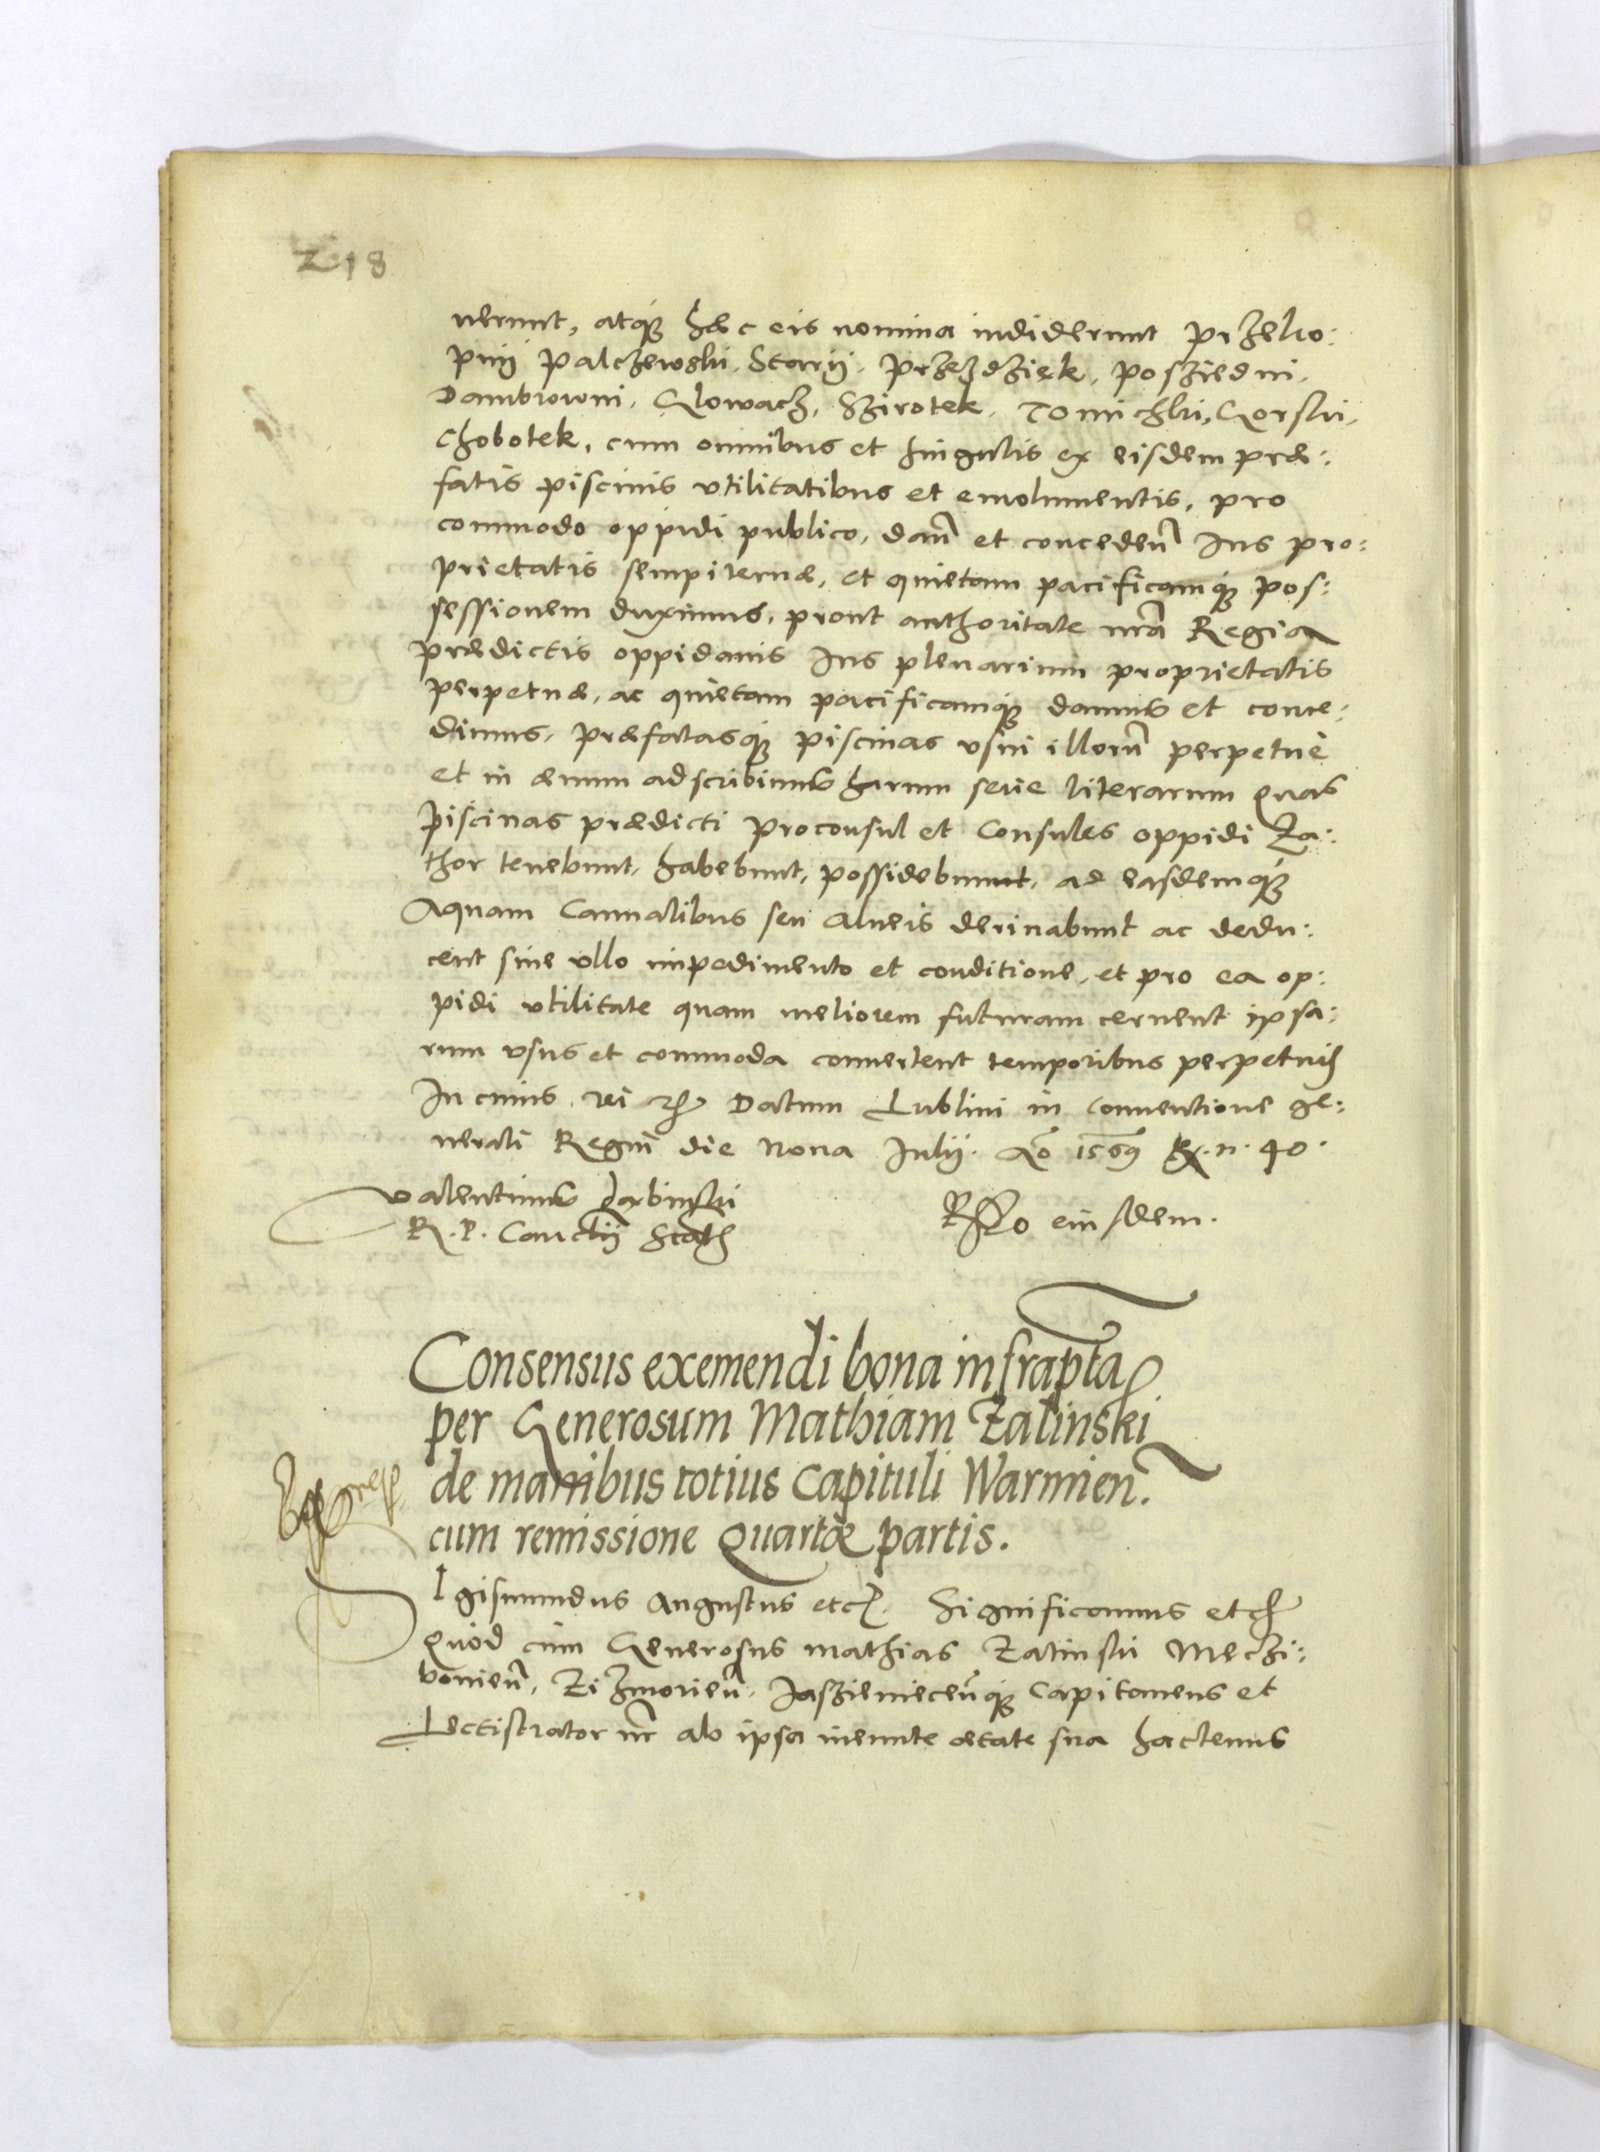 218
uerunt, atque haec eis nomina indiderunt Przeko:
pnij Palczewski. Starij. Przezdziek, Posziedni,
Dambrowni. Glowacz, Szirotek, Tomichki, Gorski,
Chobotek, cum omnibus et singulis ex eisdem præ:
fatis piscinis vtilitatibus et emolumentis, pro
commodo oppidi publico, dañ et conceden̄ Ius pro:
prietatis sempiternæ, et quietam pacificamque pos:
sessionem duximus, prout authoritate nr̃a Regia
prædictis oppidanis Ius plenarium proprietatis
perpetuæ, ac quietam pacificamque damus et conce:
dimus, Præfatasque piscinas vsui illorum̄ perpetuè
et in æuum adscribimus harum serie literarum quas
piscinas prædicti Proconsul et Consules oppidi Za:
thor tenebunt, habebunt, possidebunt, ad easdemque
Aquam Cannalibus seu Alueis deriuabunt ac dedu:
cent sine vllo impedimento et conditione, et pro ea op:
pidi vtilitate quam meliorem futuram cernent ipsa:
rum vsus et commoda conuertent temporibus perpetuis
In cuius rei etc Datum Lublini in Conuentione ge:
nerali Regni die Nona Iulij. Aō 1569 R. n. 40.
Valentinus Darbinski
R. P. Canclrij Scrips
Rlō eiusdem.
Consensus exemendi bona infrapta
per Generosum Mathiam Zalinski
de manibus totius Capituli Warmien.
cum remissione Quartæ partis.
SIgismundus Augustus etc. Significamus etc
Quòd cùm Generosus Mathias Zalinski Meczi:
bonien̄, Zizmorien̄, Jaszieniecen̄que Capitaneus et
Lectistrator nr̄ ab ipsa ineunte ætate sua hactenus